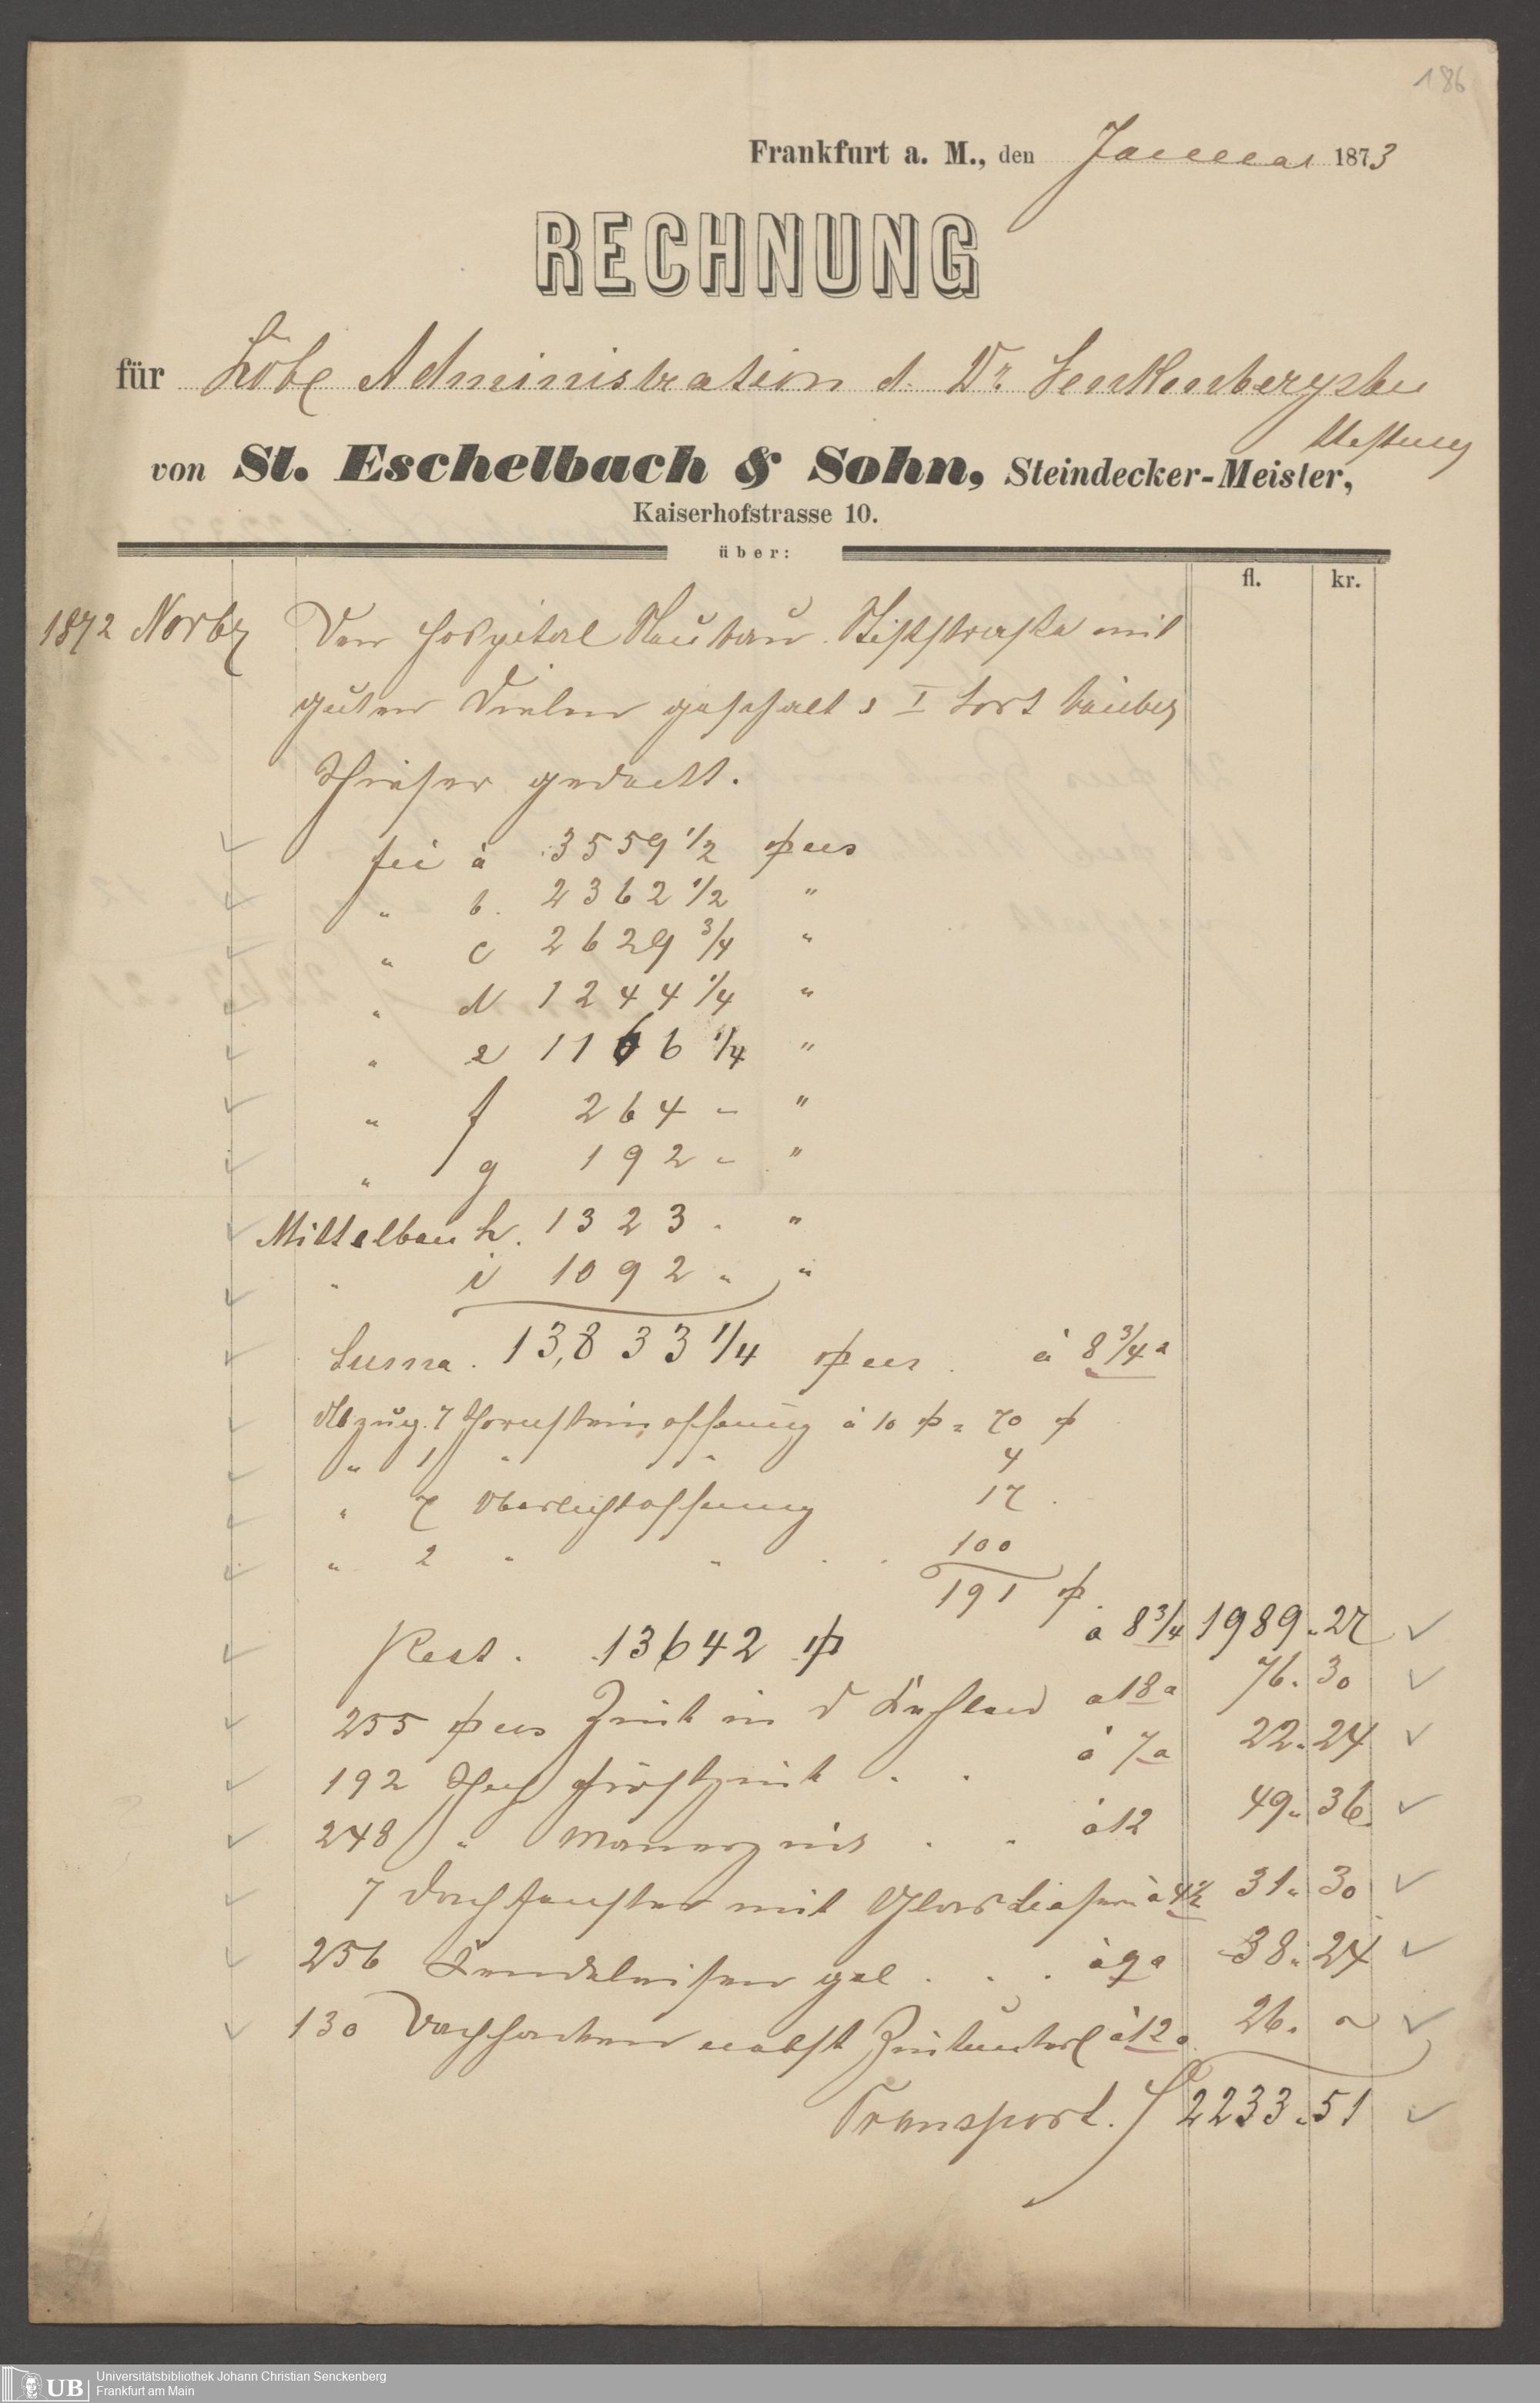 186
Frankfurt a. M., den Januar 1873
RECHNUNG
für Löbl Administration d. Dr. Senkenbergsche
Stiftung
von St. Eschelbach & Sohn, Steindecker-Meister,
Kaiserhofstrasse 10.
über:
fl. kr.
1872 Novbr Den Hospital Neubau Stiftstraße mit
guten Dielen geschalt u I Sort Cauber
Schiefer gedeckt.
fei a 3559 1/2 Φ
" b. 2362 1/2 "
" c 2629 3/4 "
" d 1244 1/4 "
" e 1166 1/4 "
" f 264 - "
" g 192 - "
Mittelbau h. 1323 - "
" i 1092 " "
Suma. 13,833 1/4 Φ à 8 3/4
Abzug. 7 Schornsteinoffnung à 10 Φ = 70 Φ
" 1 " " 4
" 7 Oberlichtoffnung 17
" 2 " " 100
191 Φ.
Rest. 13642 Φ a 8 3/4 1989 " 27
255 Φ Zink in d Kehlen a 18 76. 30
192 Sch Firstzink . . à 7 22 " 24
248 " Mauerzink . . à 12 49 " 36
7 Dachfenster mit Glas à 4 1/2 31 " 30
256 gel . . . à 9 38 " 24
130 Dachhacken nebst à 12 26. -
Transport. f 2233 " 51
UB Universitätsbibliothek Johann Christian Senckenberg
Frankfurt am Main